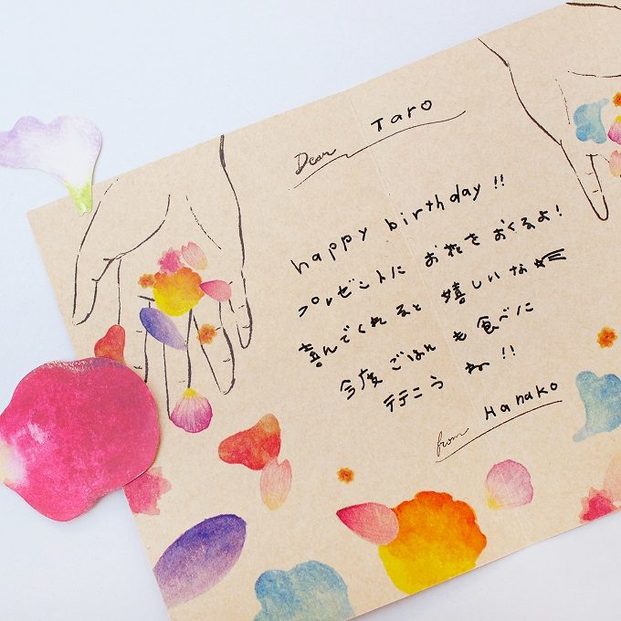 Dear Taro
happy birthday!!
プレゼントに お花を おくるよ!
喜んでくれると 嬉しいな☆
今度 ごはん も 食べに
行こう ね!!
from Hanako